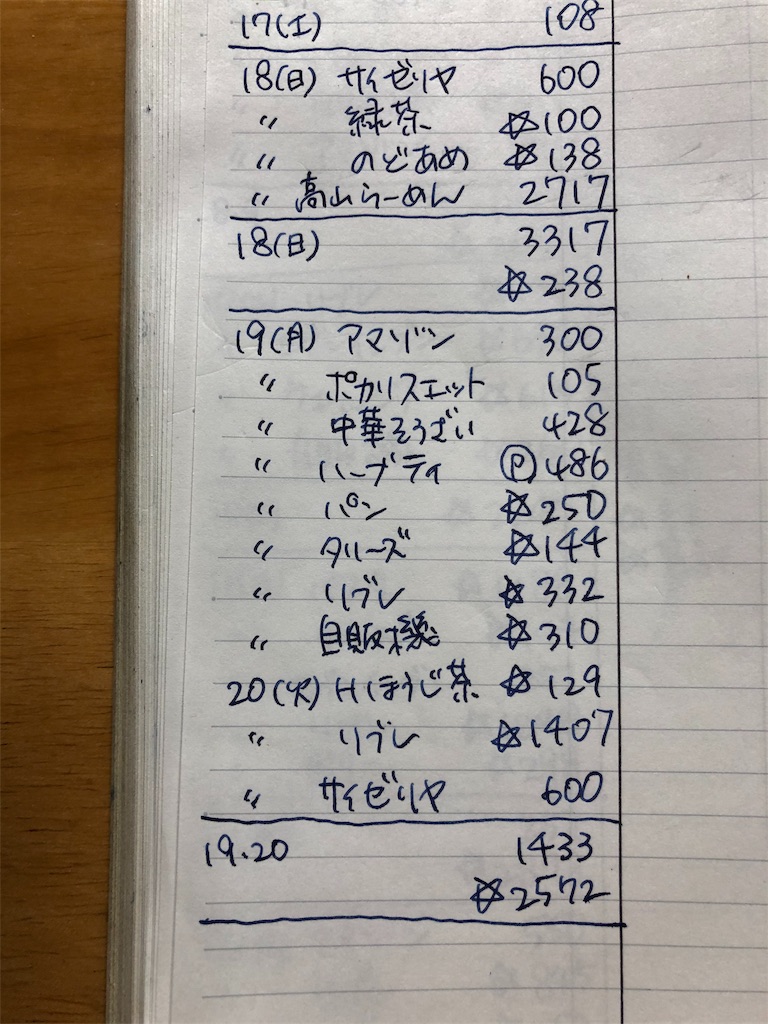 17(土) 108
18(日) サイゼリヤ 600
〃 緑茶 ☆100
〃 のどあめ ☆138
〃 高山らーめん 2717
18(日) 3317
☆238
19(月) アマゾン 300
〃 ポカリスエット 105
〃 中華そうざい 428
〃 ハーブティ Ⓟ486
〃 パン ☆250
〃 タリーズ ☆144
〃 リブレ ☆332
〃 自販機 ☆310
20(火) Hほうじ茶 ☆129
〃 リブレ ☆1407
〃 サイゼリヤ 600
19.20 1433
☆2572